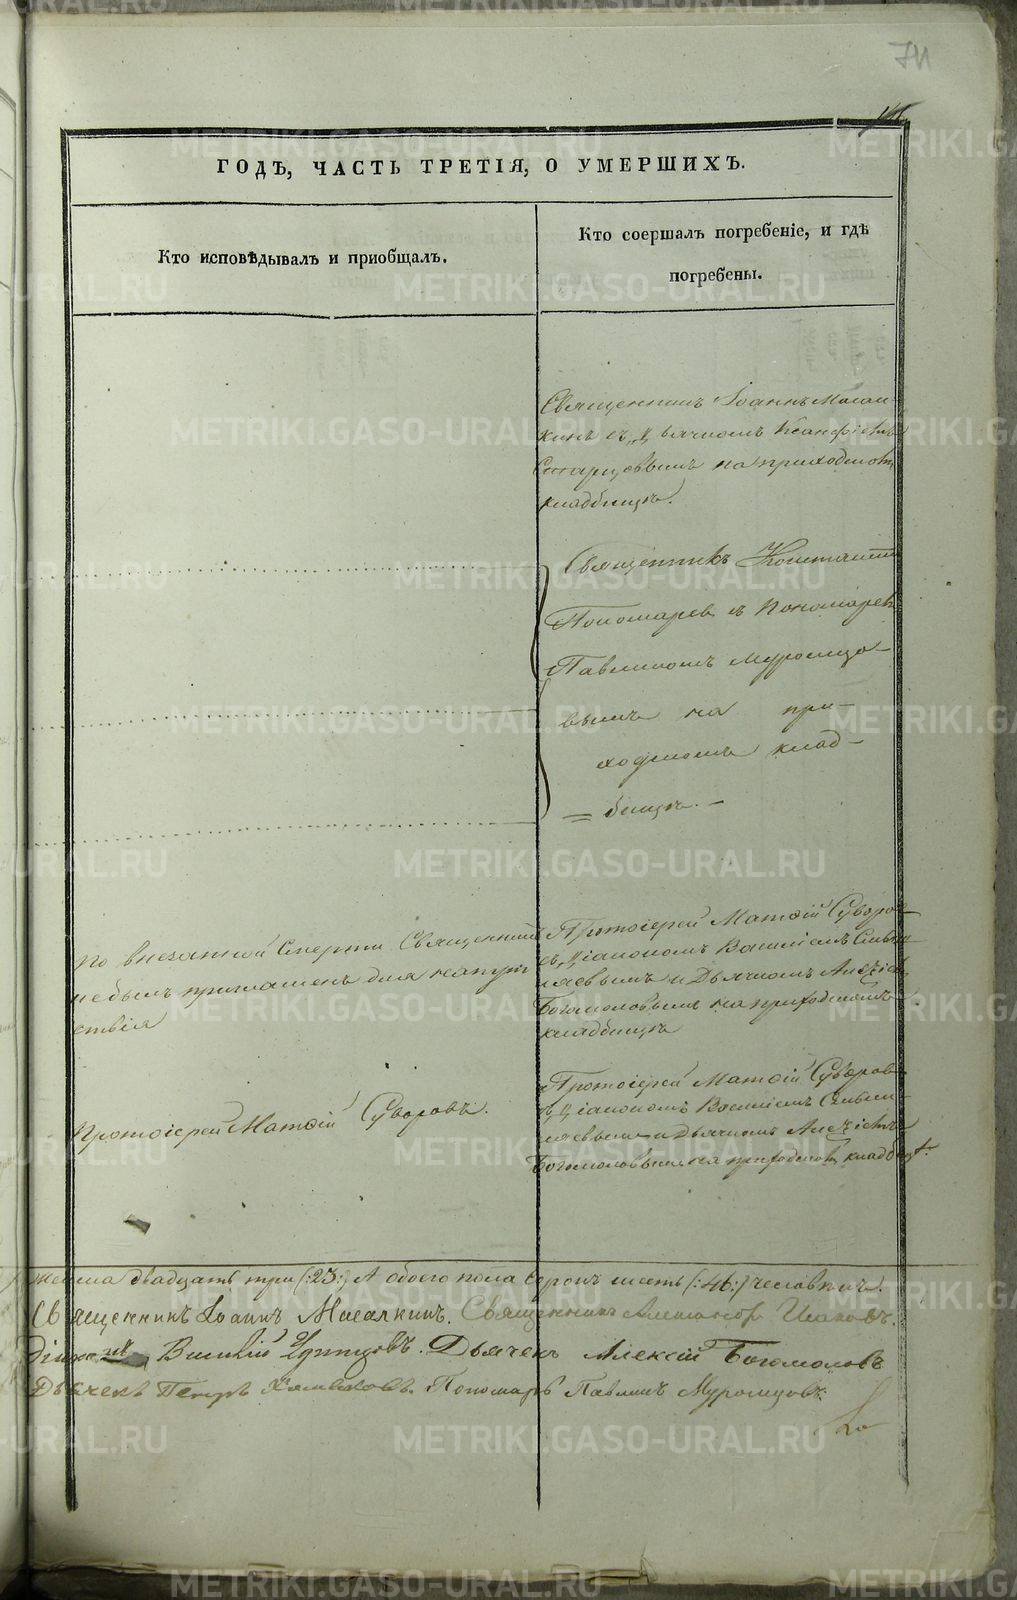 74
ГОДЪ, ЧАСТЬ ТРЕТІЯ, О УМЕРШИХЪ.
Кто исповѣдывалъ и пріобщалъ.
Кто соершалъ погребеніе, и гдѣ
погребены.
Священникъ Іоаннъ Масал-
кинъ съ Дьячкомъ
Старцовымъ на приходскомъ
кладбищѣ.
Священникъ Константинъ
Пономаревъ съ Пономаремъ
Павлиномъ Муромцо-
вымъ на при-
ходскомъ клад-
бищѣ.
По внезапной смерти Священникъ
не былъ приглашенъ для напут
ствія
Протоіерей Матѳій Суворовъ
съ Діакономъ Василіемъ
и Дьячкомъ Алексіемъ
Богомоловымъ на приходскомъ
кладбищѣ
Протоіерей Матѳій Суворовъ.
Протоіерей Матѳій Суворовъ
съ Діакономъ Василіемъ
и Дьячкомъ Алексіемъ
Богомоловымъ на приходском кладбищѣ.
женска двадцать три (:23:) А обоего пола сорокъ шесть (:46:) человѣкъ.
Священникъ Іоаннъ Масалкинъ. Священникъ Александръ
Василій Дьячекъ Алексій Богомоловъ
Дьячекъ Петръ Пономарь Павлинъ Муромцовъ.
METRIKI.GASO-URAL.RU